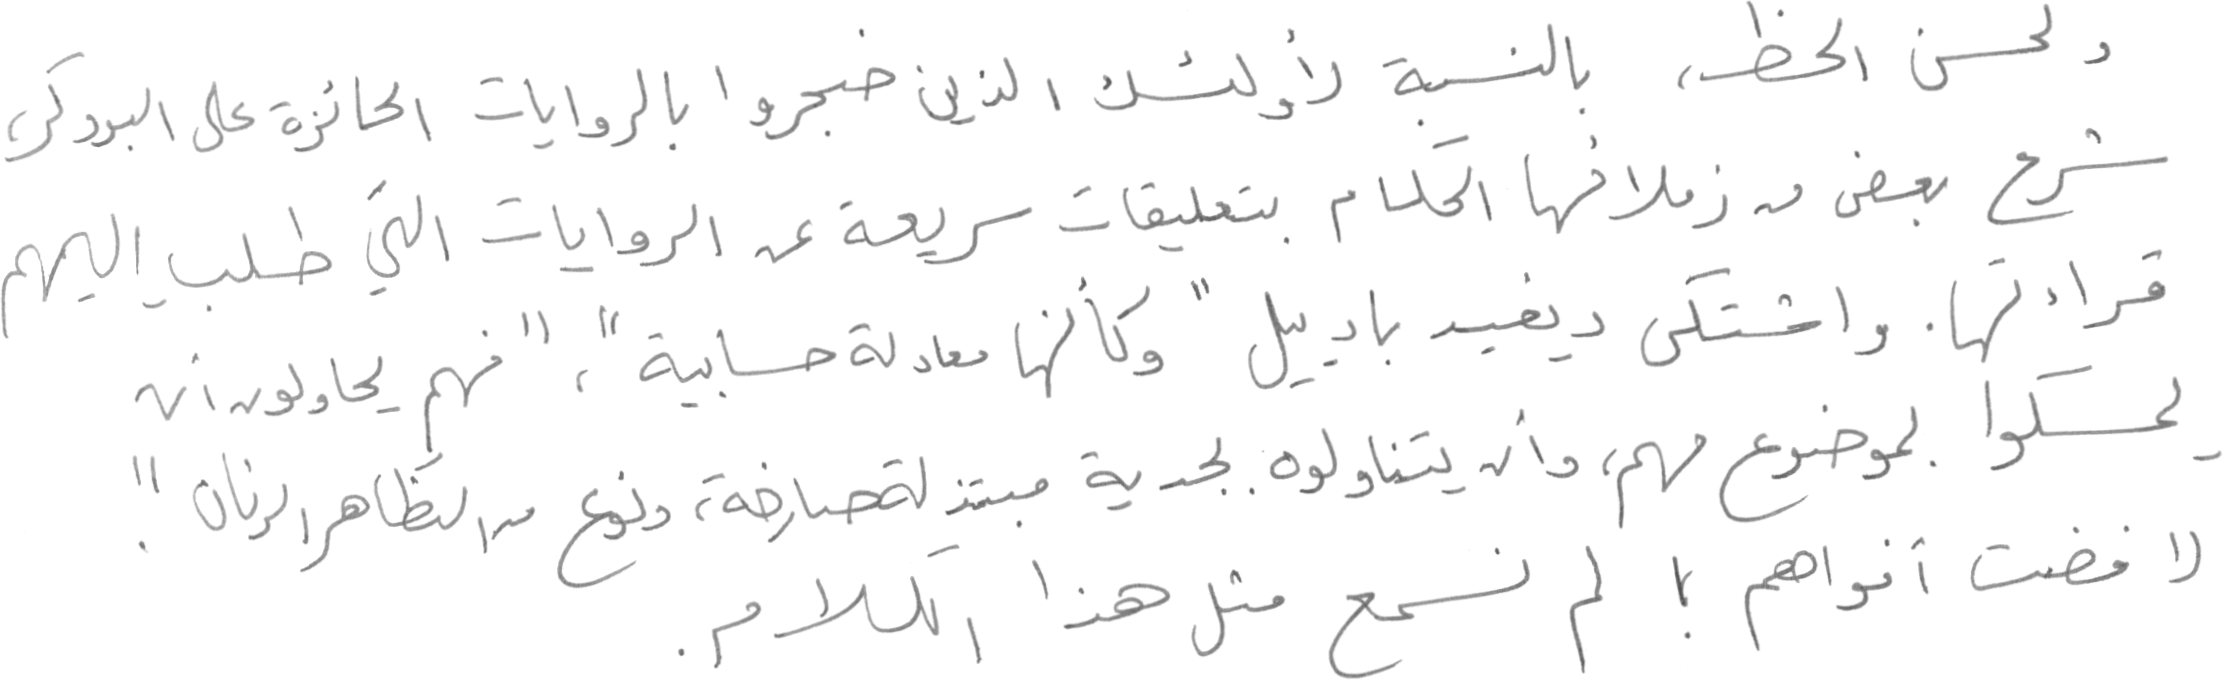 ولحسن الحظ، بالنسبة لأولئك الذين ضجروا بالروايات الحائزة على البوكر،
شرع بعض من زملائها الحكام بتعليقات سريعة عن الروايات التي طلب إليهم
قراءتها. واشتكى ديفيد باديل "وكأنها معادلة حسابية"، "فهم يحاولون أن
يمسكوا بموضوع مهم، وأن يتناولوه بجدية مبتذلة صارخة، ونوع من التظاهر الرنان".
لا فضت أفواههم! لم نسمع مثل هذا الكلام.